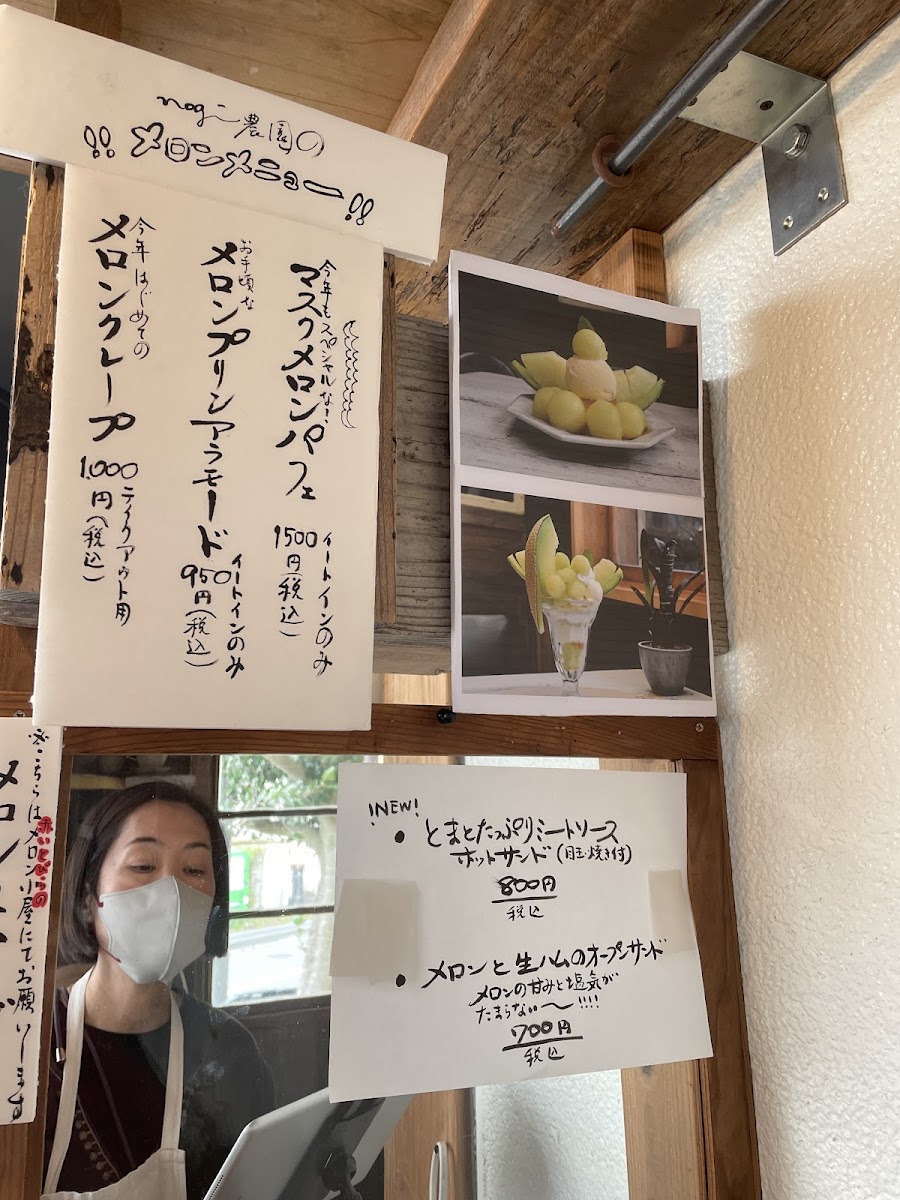 nogi農園の
!! メロンメニュー !!
今年もスペシャルな!
マスクメロンパフェ
イートインのみ
1500円(税込)
お手頃な
メロンプリンアラモード
イートインのみ
950円(税込)
今年はじめての
メロンクレープ
テイクアウト用
1,000円(税込)
!NEW!
• とまとたっぷりミートソース
ホットサンド(目玉焼き付)
800円
税込
• メロンと生ハムのオープンサンド
メロンの甘みと塩気が
たまらない〜!!!!
700円
税込
※こちらはメロン小屋にてお願いします
赤いとびらの